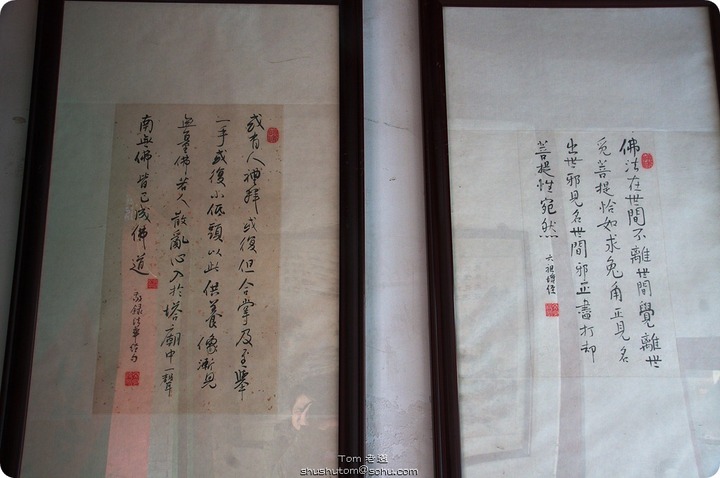 佛法在世間不離世間覺離世
覓菩提恰如求兔角正見名
出世邪見名世間邪正盡打却
菩提性宛然
六祖壇經
或有人禮拜或復但合掌乃至舉
一手或復小低頭以此供養像漸見
無量佛若人散亂心入於塔廟中一稱
南無佛皆已成佛道
敬錄法華經句
Tom 老
shushutom@sohu.com